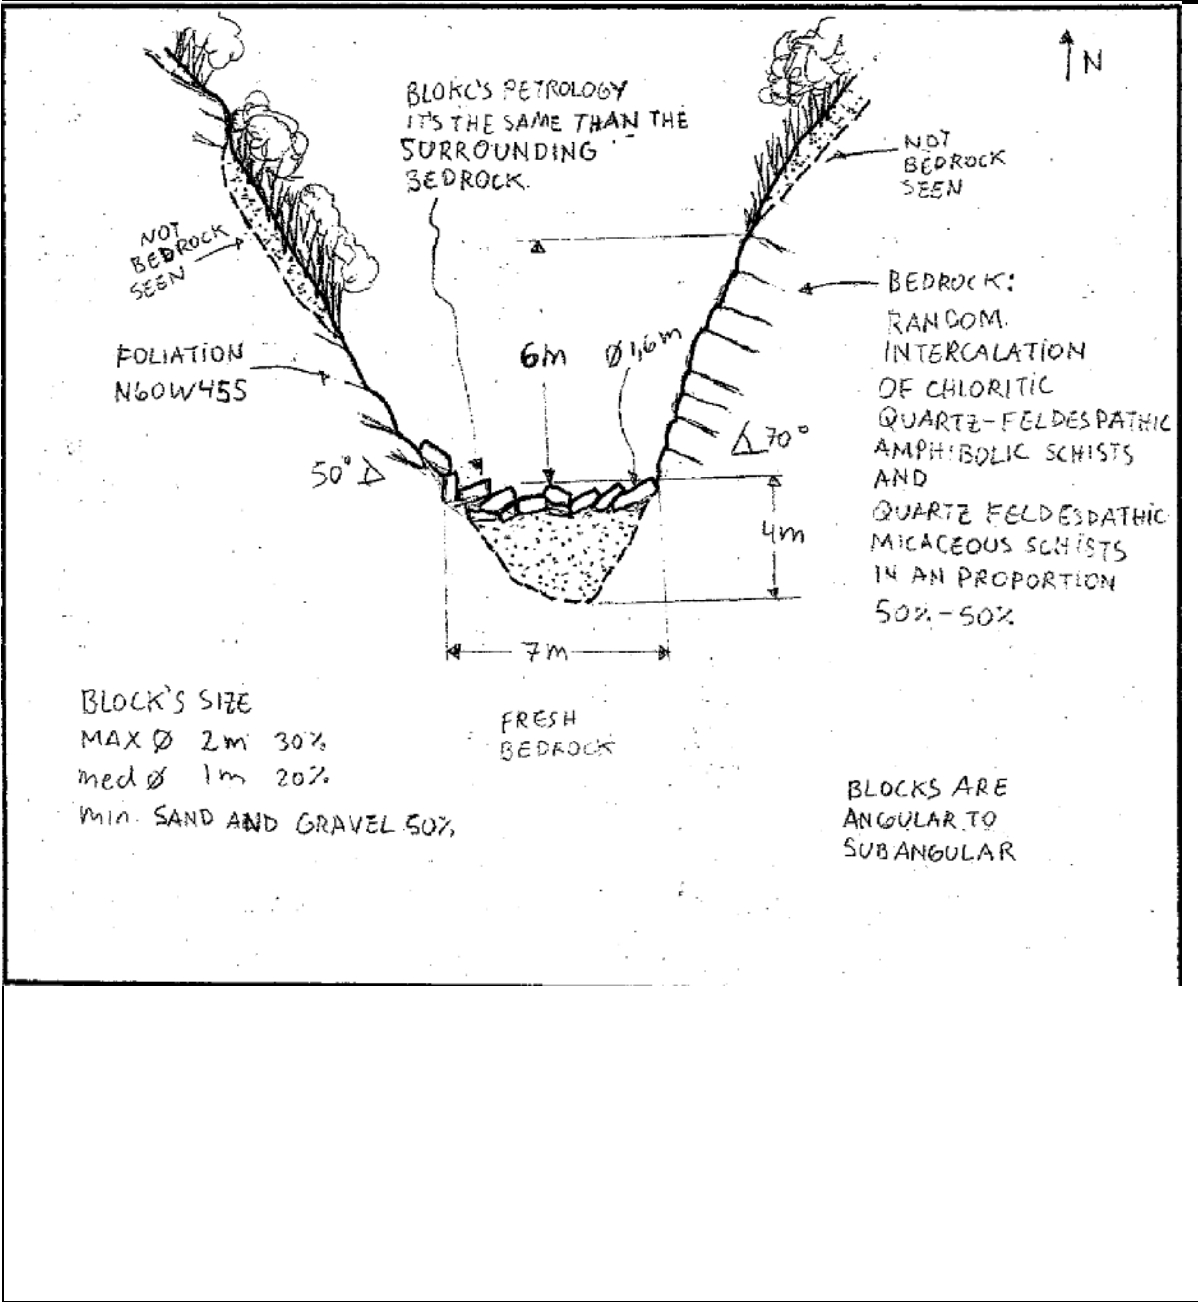 N
BLOKC'S PETROLOGY
IT'S THE SAME THAN THE
SURROUNDING
BEDROCK.
NOT
BEDROCK
SEEN
NOT
BEDROCK
SEEN
BEDROCK:
RANDOM.
INTERCALATION
OF CHLORITIC
QUARTZ-FELDESPATHIC
AMPHIBOLIC SCHISTS
AND
QUARTZ FELDESPATHIC
MICACEOUS SCHISTS
IN AN PROPORTION
50%-50%
FOLIATION
N60W45S
6m
Ø1,6m
50°
70°
4m
7m
BLOCK'S SIZE
MAX Ø 2m 30%
med Ø 1m 20%
min. SAND AND GRAVEL 50%
FRESH
BEDROCK
BLOCKS ARE
ANGULAR TO
SUBANGULAR